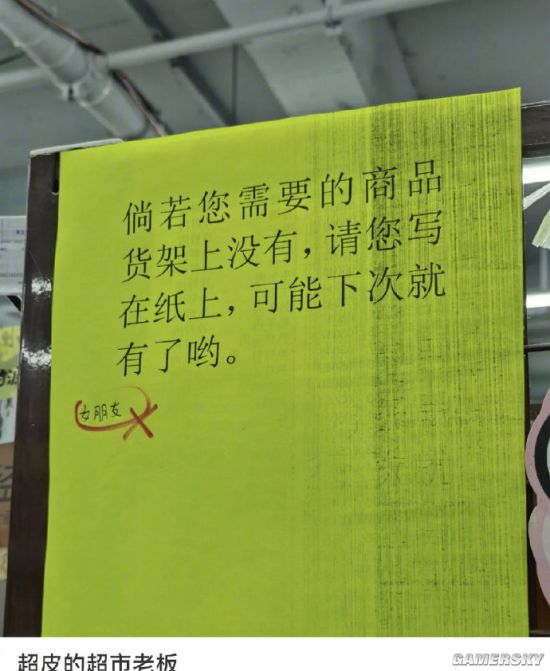 倘若您需要的商品
货架上没有，请您写
在纸上，可能下次就
有了哟。
女朋友
超皮的超市老板
GAMERSKY